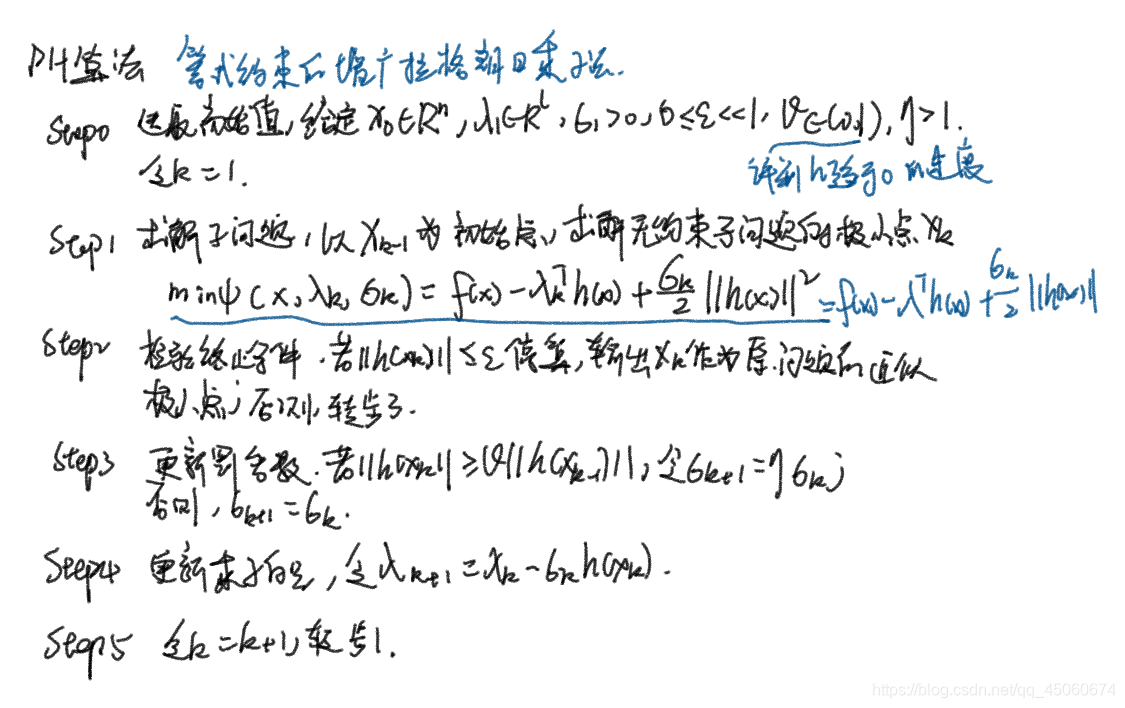 PH算法 等式约束的增广拉格朗日乘子法.
Step0 选取初始值,给定 x₀∈Rⁿ, λ₁∈Rˡ, σ₁>0, 0≤ε<<1, ϑ∈(0,1), η>1.
令k=1.
评判h趋于0的速度
Step1 求解子问题,以 xₖ₋₁ 为初始点,求解无约束子问题的极小点 xₖ
minψ(x, λₖ, σₖ) = f(x) - λₖᵀh(x) + σₖ/2 ||h(x)||² = f(x) - λᵀh(x) + σₖ/2 ||h(x)||
Step2 检验终止条件. 若||h(xₖ)||≤ε停算,输出xₖ作为原问题的近似
极小点;否则,转步3.
Step3 更新罚参数. 若||h(xₖ)||≥ϑ||h(xₖ₋₁)||, 令σₖ₊₁=ησₖ;
否则, σₖ₊₁=σₖ.
Step4 更新乘子向量, 令λₖ₊₁=λₖ-σₖh(xₖ).
Step5 令k=k+1,转步1.
https://blog.csdn.net/qq_45060674